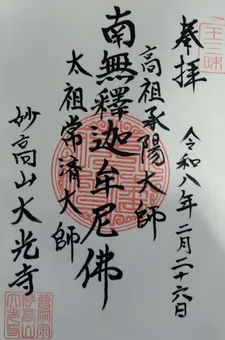 奉拝
令和八年二月二十六日
高祖承陽大師
南無釋迦牟尼佛
太祖常済大師
妙高山大光寺